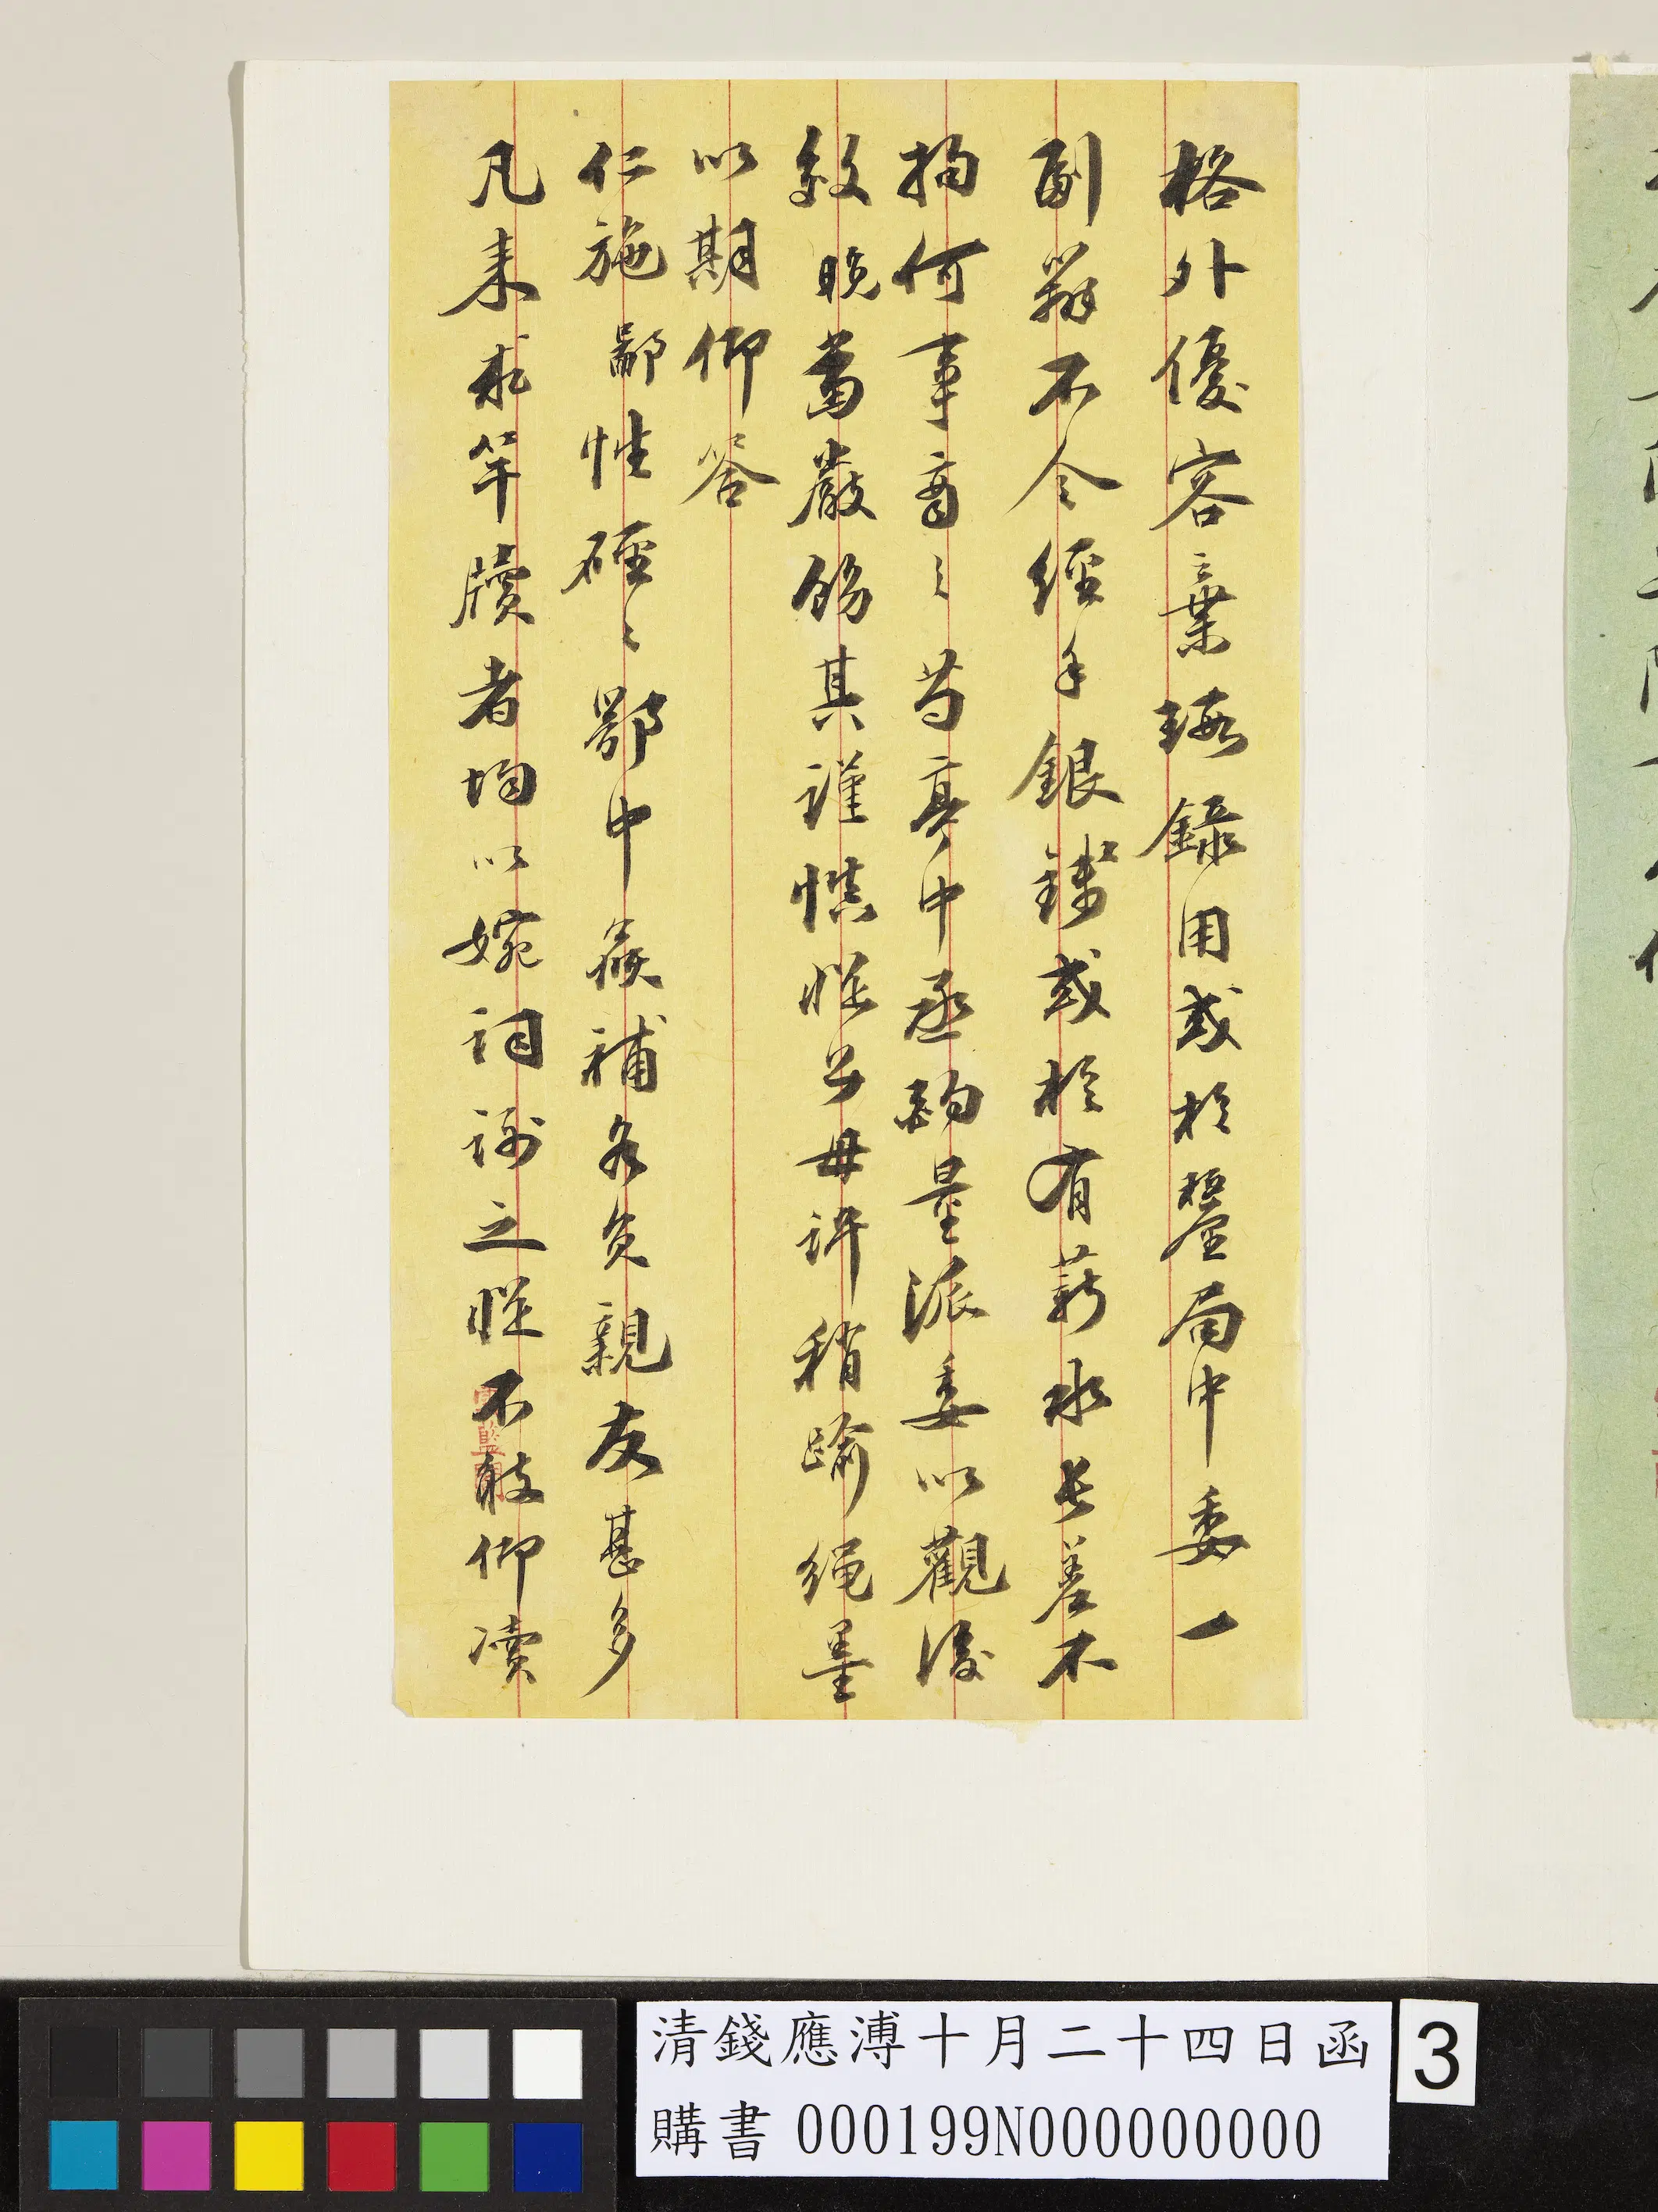 格外優容棄瑕錄用或於釐局中委一
副辦不令經手銀錢或於有薪水長差不
拘何事商之芍亭中丞酌量派委以觀後
效晚當嚴飭其謹慎從公毋許稍踰繩墨
以期仰答
仁施鄙性硜硜鄂中候補各員親友甚多
凡來求竿牘者均以婉詞謝之從不敢仰瀆
清錢應溥十月二十四日函
購書 000199N000000000
3